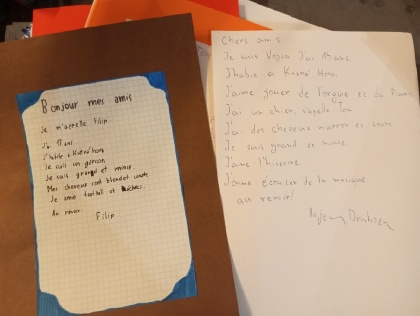 Bonjour mes amis
Je m'appelle Filip.
J'ai ans
J'habite à Kutná Hora
Je suis un garçon
Je suis grand et mince.
Mes cheveux sont blonds et courts.
Je aime football et
Au revoir
Filip
Chers amis
Je suis J'ai ans
J'habite a Kutná Hora.
J'aime jouer de l'orgue et du Piano
J'ai un chien, s'apelle
J'ai des cheveux marron et
Je suis grand et mince.
J'aime l'histoire
J'aime écouter de la musique
au revoir!